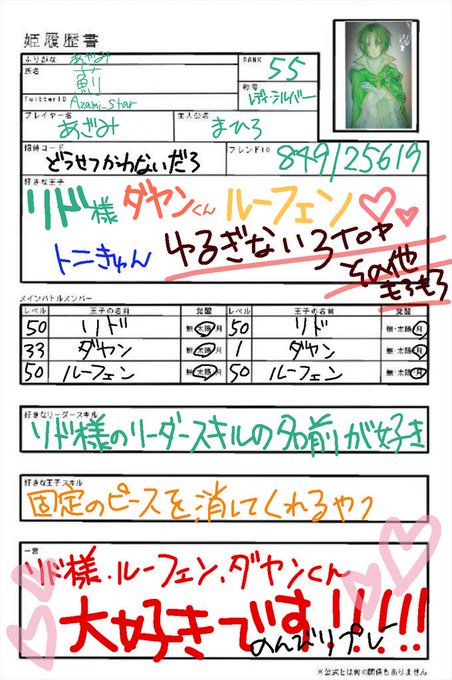 姫履歴書
ふりがな あざみ
RANK 55
氏名 薊
称号 レディシルバー
TwitterID Azami_star
プレイヤー名 あざみ
主人公名 まひろ
招待コード どうせつかわないだろ
フレンドID 849125619
好きな王子
リド様 ダヤンくん ルーフェン
トニきゅん ゆるぎない3TOP
その他
もろもろ
メインバトルメンバー
レベル 王子の名前 覚醒 レベル 王子の名前 覚醒
50 リド 無・太陽・月 50 リド 無・太陽・月
33 ダヤン 無・太陽・月 1 ダヤン 無・太陽・月
50 ルーフェン 無・太陽・月 50 ルーフェン 無・太陽・月
好きなリーダースキル
リド様のリーダースキルの名前が好き
好きな王子スキル
固定のピースを消してくれるやつ
一言
リド様・ルーフェン・ダヤンくん
大好きです!!!!!
のんびりプレー
※公式とは何の関係もありません